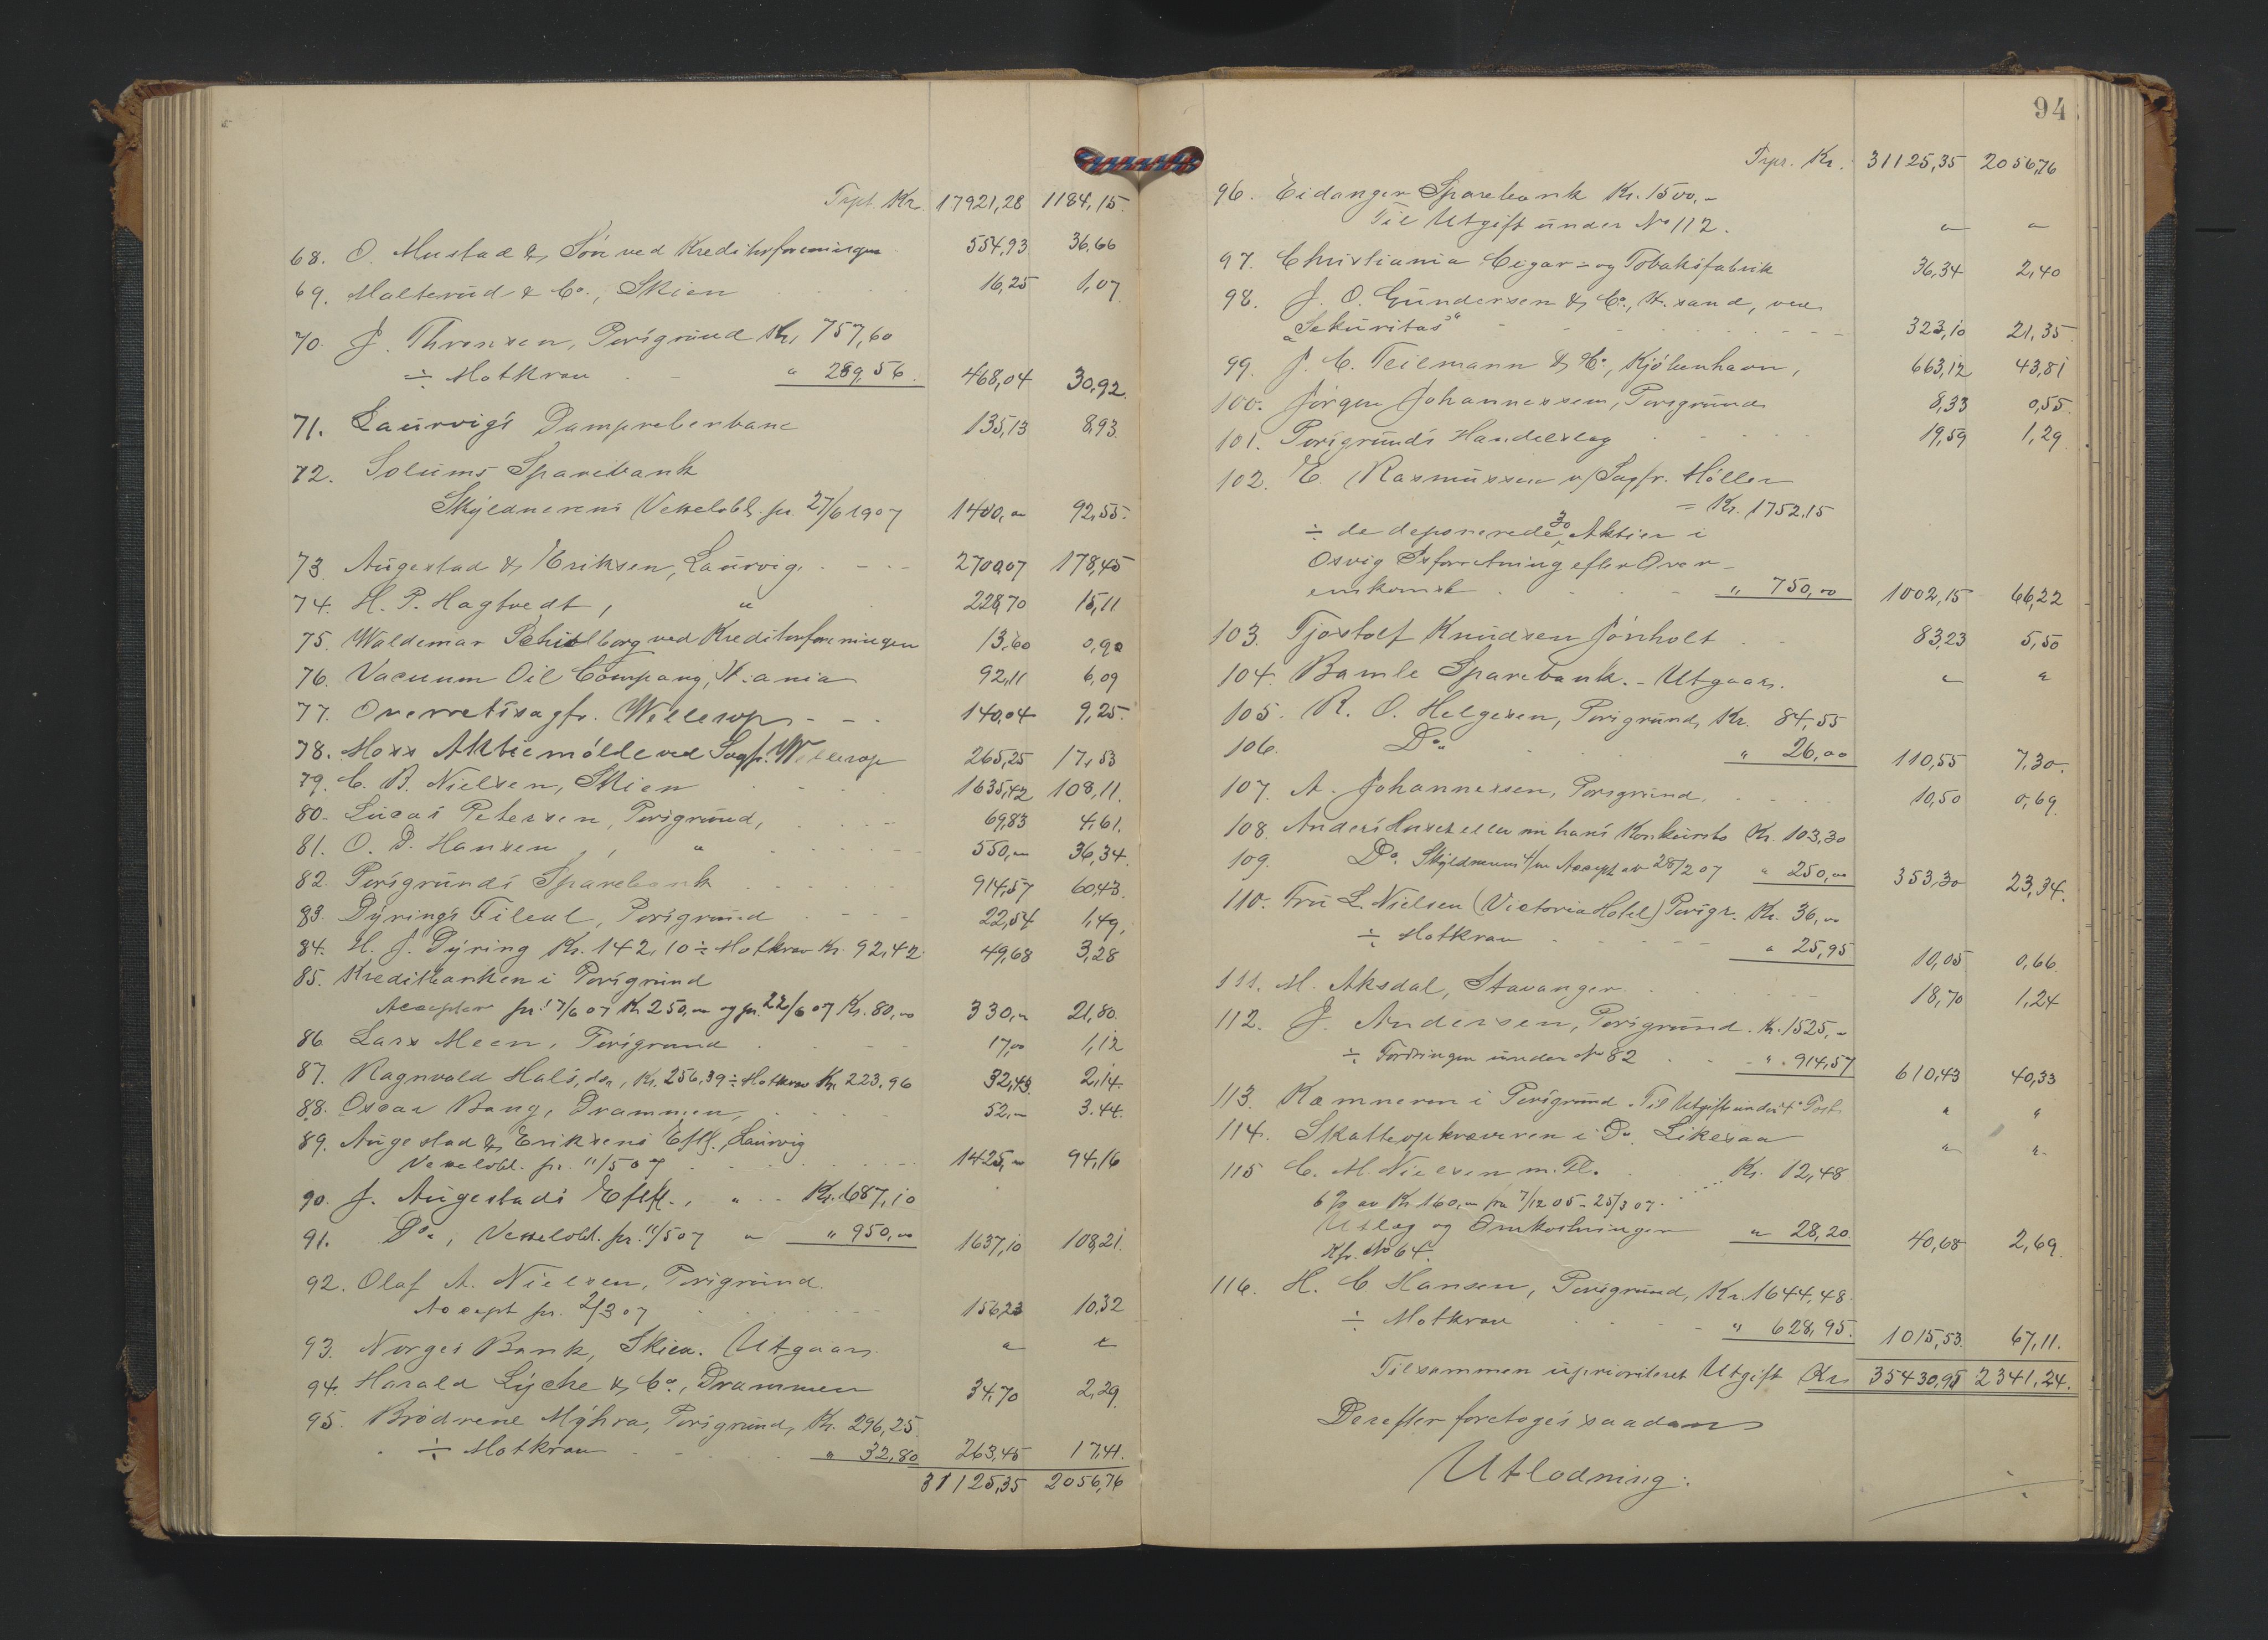 Trpt. Kr. 17921,28 1184,15.
68. O. Mustad & Søn ved Kreditorforeningen 554,93 36,66
69. Malterud & Co., Skien 16,25 1,07
70. J. Thronsen, Porsgrund Kr. 757,60
÷ Motkrav " 289,56. 468,04 30,92.
71. Laurvigs Dampveberbane 135,13 8,93
72. Solums Sparebank
Skyldnerens Vexelobl. pr. 27/6 1907 1400,00 92,55.
73. Augestad & Eriksen, Laurvig. 2700,07 178,45
74. H. P. Hagtvedt, " 228,70 15,11
75. Waldemar Schiølborg ved Kreditorforeningen 13,60 0,90
76. Vacuum Oil Company, K.ania 92,11 6,09
77. Overretssagfr. Wellerop 140,04 9,25.
78. Moss Aktiemølle ved Sagf. Wellerop 265,25 17,53
79. C. B. Nielsen, Skien 1635,42 108,11.
80. Lucas Petersen, Porsgrund, 69,83 4,61.
81. O. P. Hansen, " 550,00 36,34.
82. Porsgrunds Sparebank 914,57 60,43.
83. Dyrings Filial, Porsgrund 22,54 1,49,
84. H. J. Dyring Kr. 142,10 ÷ Motkrav Kr. 92,42. 49,68 3,28
85. Kreditbanken i Porsgrund
Accepter pr. 17/6 07 Kr. 250,00 og pr. 22/6 07 Kr. 80,00 330,00 21,80.
86. Lars Meen, Porsgrund 17,00 1,12
87. Ragnvald Hals, do., Kr. 256,39 ÷ Motkrav Kr. 223,96 32,43 2,14.
88. Oscar Bang, Drammen, 52,- 3.44.
89. Augestad & Eriksens Eftf., Laurvig
Vexelobl. pr. 11/5 07 1425,00 94,16
90. J. Augestads Eftf., " Kr. 687,10
91. Do., Vexelobl. pr. 11/5 07 " " 950,00 1637,10 108,21.
92. Olaf A. Nielsen, Porsgrund.
Accept pr. 2/3 07 156,23 10,32
93. Norges Bank, Skien. Utgaar. " "
94. Harald Lyche & Co., Drammen 34,70 2,29
95. Brødrene Myhra, Porsgrund, Kr. 296,25
÷ Motkrav " 32,80 263,45 17,41.
31125,35 2056,76
94
Trpr. Kr. 31125,35 2056,76
96. Eidanger Sparebank Kr. 1500,-
Til Utgift under No 112. " "
97. Christiania Cigar- og Tobaksfabrik 36,34 2,40
98. J. O. Gundersen & Co., K.sand, ved
"Sekuritas" 323,10 21,35
99. J. C. Teilmann & Co., Kjøbenhavn, 663,12 43,81
100. Jørgen Johannessen, Porsgrund 8,33 0,55.
101. Porsgrunds Handelslag 19,59 1,29
102. E. Rasmussen v/ Sagfr. Møller
= Kr. 1752.15
÷ de deponerede 30 Aktier i
Osvig Isforretning efter Over-
enskomst " 750,00 1002,15 66,22
103. Tjostolf Knudsen Jønholt 83,23 5,50
104. Bamle Sparebank. - Utgaar. " "
105. R. O. Helgesen, Porsgrund, Kr. 84,55
106. Do. " 26,00 110,55 7,30.
107. A. Johannessen, Porsgrund, 10,50 0,69.
108. Anders Huset eller nu hans Konkursbo Kr. 103,30
109. Do. Skyldnerens Accept av 28/2 07 " 250,00 353,30 23,34.
110. Fru L. Nielsen (Victoria Hotel) Porsgr. Kr. 36,00
÷ Motkrav " 25,95 10,05 0,66.
111. M. Aksdal, Stavanger 18,70 1,24
112. J. Andersen, Porsgrund. Kr. 1525,-
÷ Fordringen under No 82 " 914,57 610,43 40,33
113. Kæmneren i Porsgrund. Til Utgift under 4o Post. " "
114. Skatteopkræveren i Do. Likesaa " "
115 C. M. Nielsen m. Fl. Kr. 12,48
6 % av Kr. 160,00 fra 7/12 05 - 25/3 07.
Utlæg og Omkostninger " 28,20 40,68 2,69.
Kfr. No 64.
116. H. C. Hansen, Porsgrund, Kr. 1644,48
÷ Motkrav " 628,95. 1015,53. 67,11.
Tilsammen uprioriteret Utgift Kr. 35430,95 2341,24.
Derefter foretoges saadan
Utlodning: